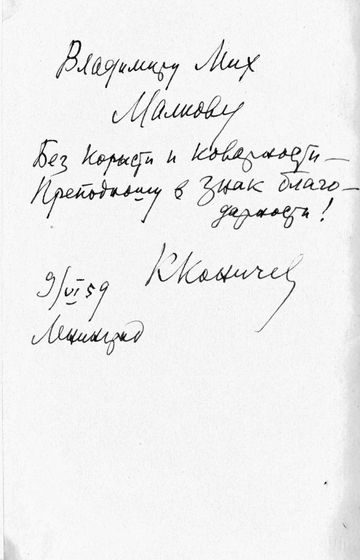 Владимиру Мих
Малкову
Без корысти и коварности –
Преподношу в знак благо–
дарности!
К Коничев
9/VI 59
Ленинград